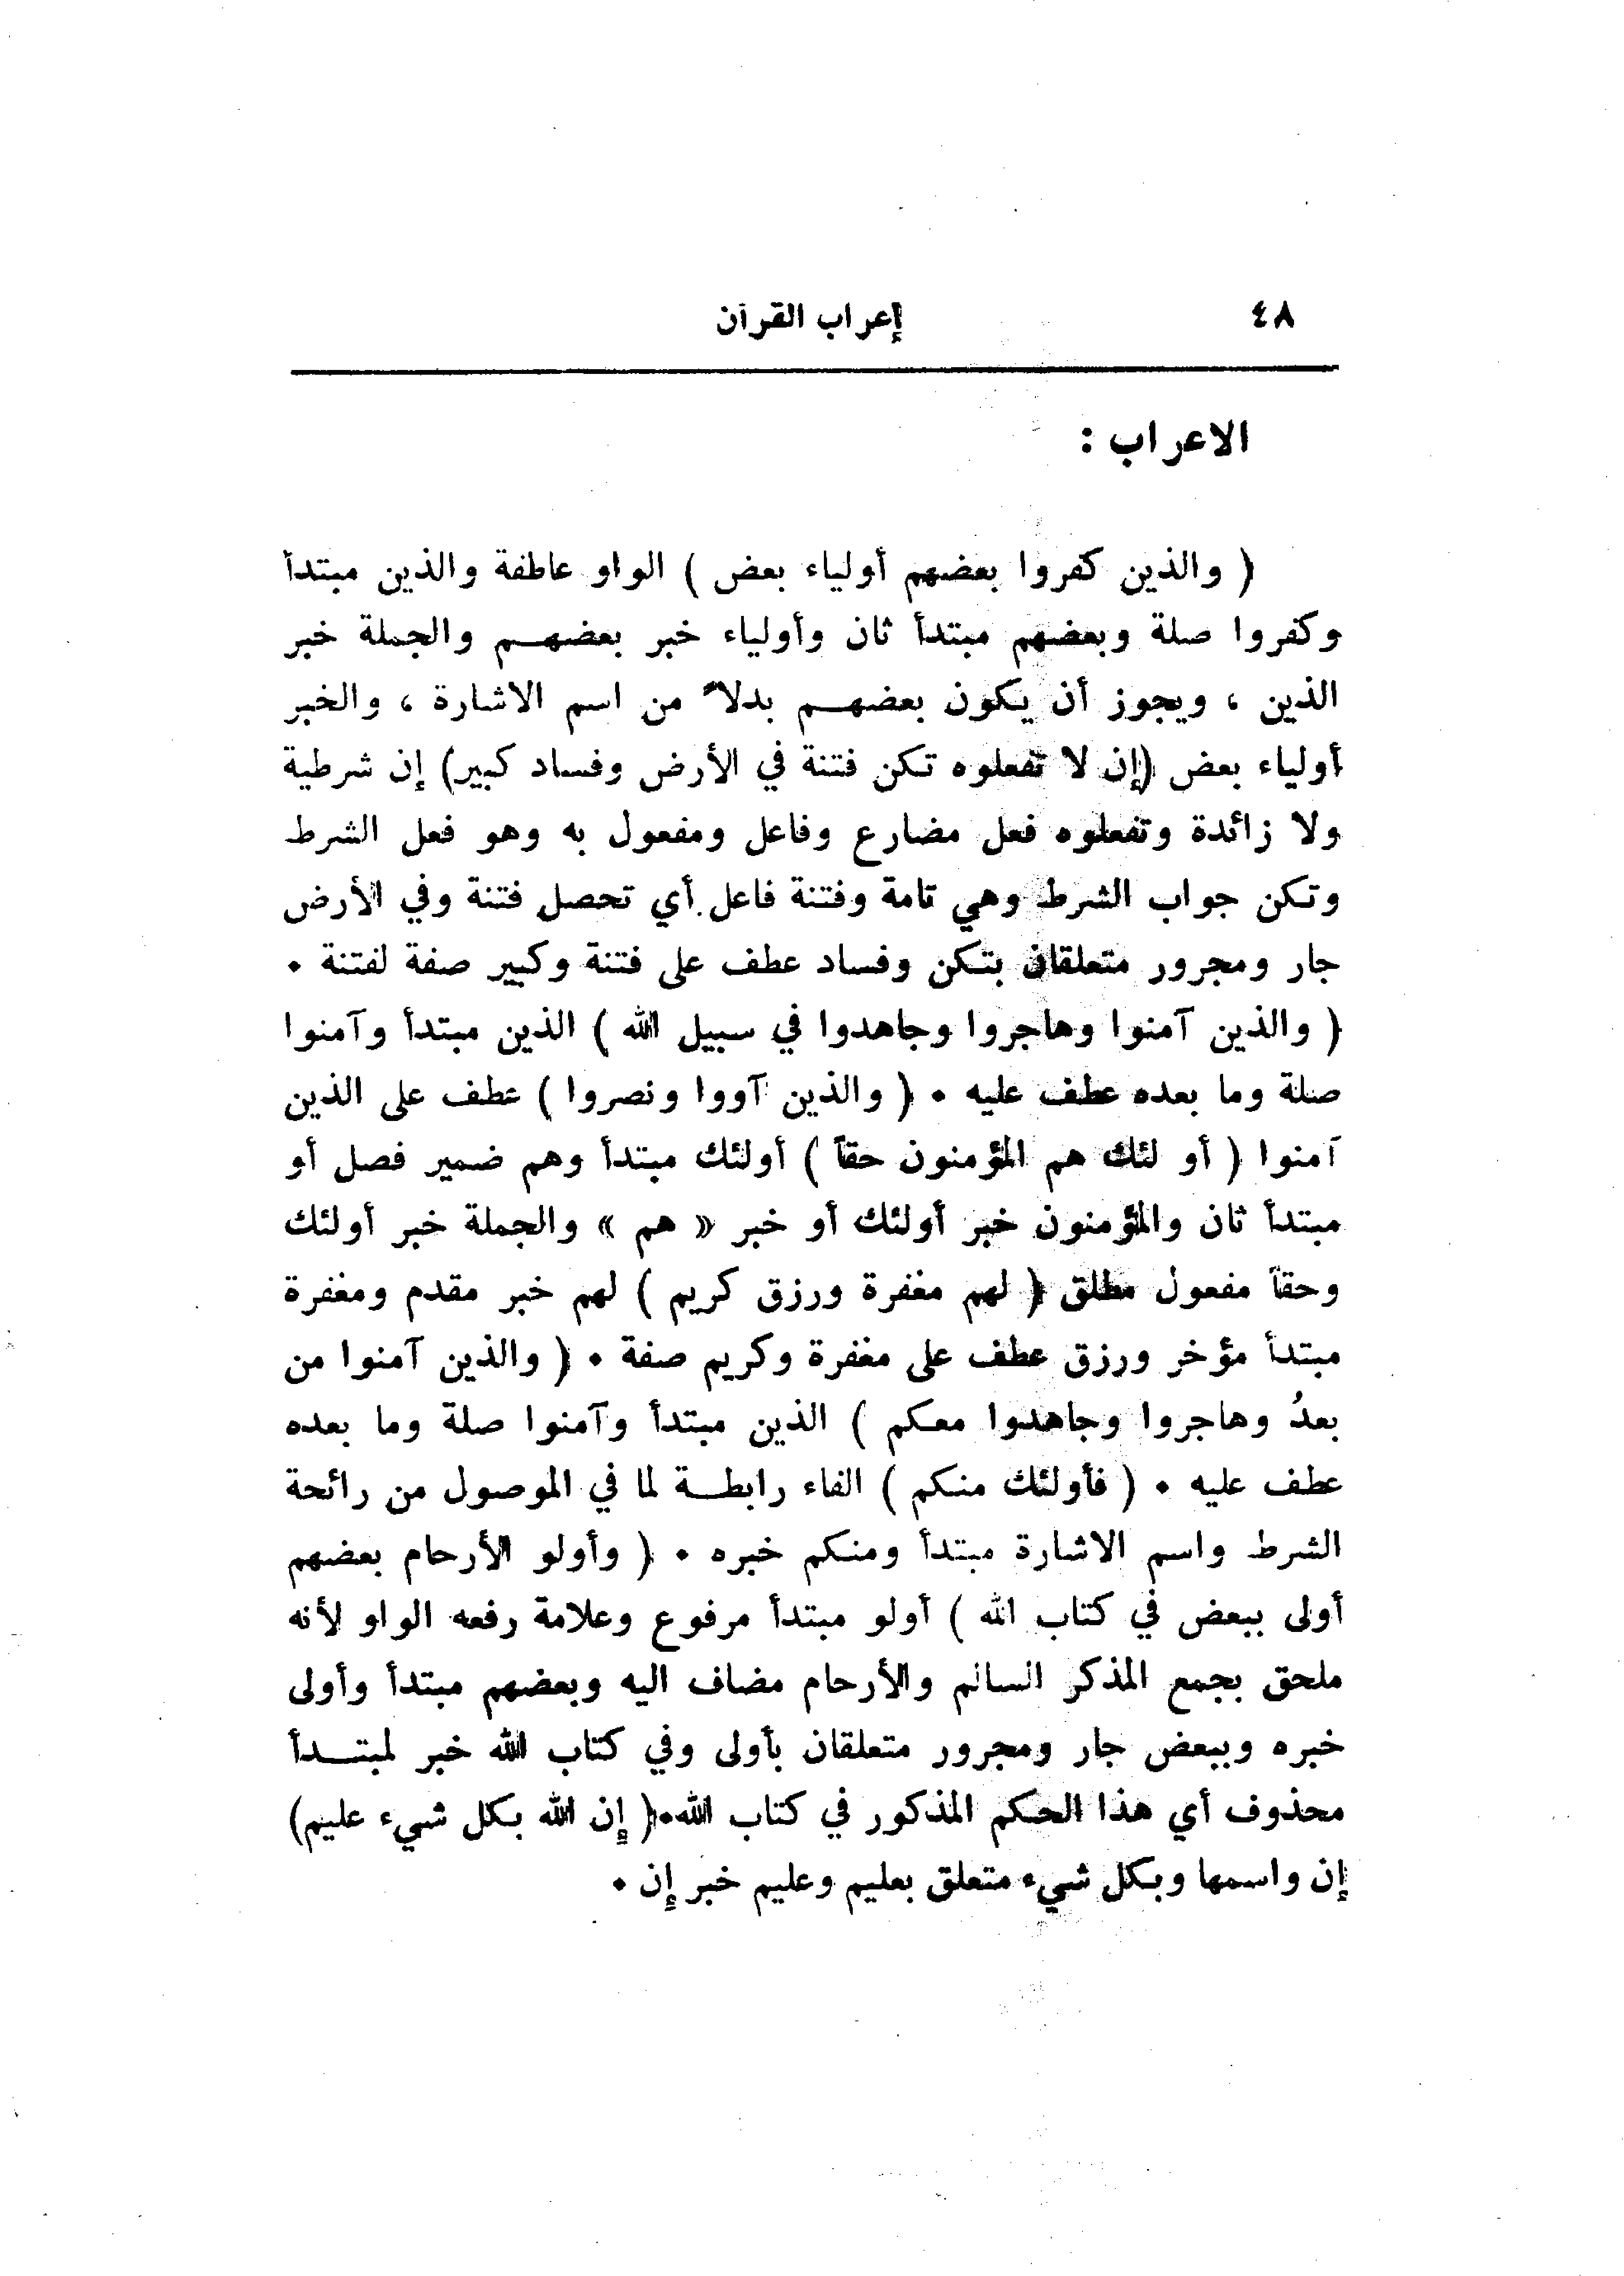 ٤٨ إعراب القرآن
الاعراب :
( والذين كفروا بعضهم أولياء بعض ) الواو عاطفة والذين مبتدأ
وكفروا صلة وبعضهم مبتدأ ثان وأولياء خبر بعضهم والجملة خبر
الذين ، ويجوز أن يكون بعضهم بدلاً من اسم الاشارة ، والخبر
أولياء بعض (إن لا تفعلوه تكن فتنة في الأرض وفساد كبير) إن شرطية
ولا زائدة وتفعلوه فعل مضارع وفاعل ومفعول به وهو فعل الشرط
وتكن جواب الشرط وهي تامة وفتنة فاعل أي تحصل فتنة وفي الأرض
جار ومجرور متعلقان بتكن وفساد عطف على فتنة وكبير صفة لفتنة .
( والذين آمنوا وهاجروا وجاهدوا في سبيل الله ) الذين مبتدأ وآمنوا
صلة وما بعده عطف عليه . ( والذين آووا ونصروا ) عطف على الذين
آمنوا ( أو لئك هم المؤمنون حقاً ) أولئك مبتدأ وهم ضمير فصل أو
مبتدأ ثان والمؤمنون خبر أولئك أو خبر « هم » والجملة خبر أولئك
وحقاً مفعول مطلق ( لهم مغفرة ورزق كريم ) لهم خبر مقدم ومغفرة
مبتدأ مؤخر ورزق عطف على مغفرة وكريم صفة . ( والذين آمنوا من
بعدُ وهاجروا وجاهدوا معكم ) الذين مبتدأ وآمنوا صلة وما بعده
عطف عليه . ( فأولئك منكم ) الفاء رابطة لما في الموصول من رائحة
الشرط واسم الاشارة مبتدأ ومنكم خبره . ( وأولو الأرحام بعضهم
أولى ببعض في كتاب الله ) أولو مبتدأ مرفوع وعلامة رفعه الواو لأنه
ملحق بجمع المذكر السالم والأرحام مضاف اليه وبعضهم مبتدأ وأولى
خبره وببعض جار ومجرور متعلقان بأولى وفي كتاب الله خبر لمبتدأ
محذوف أي هذا الحكم المذكور في كتاب الله.( إن الله بكل شيء عليم)
إن واسمها وبكل شيء متعلق بعليم وعليم خبر إن .